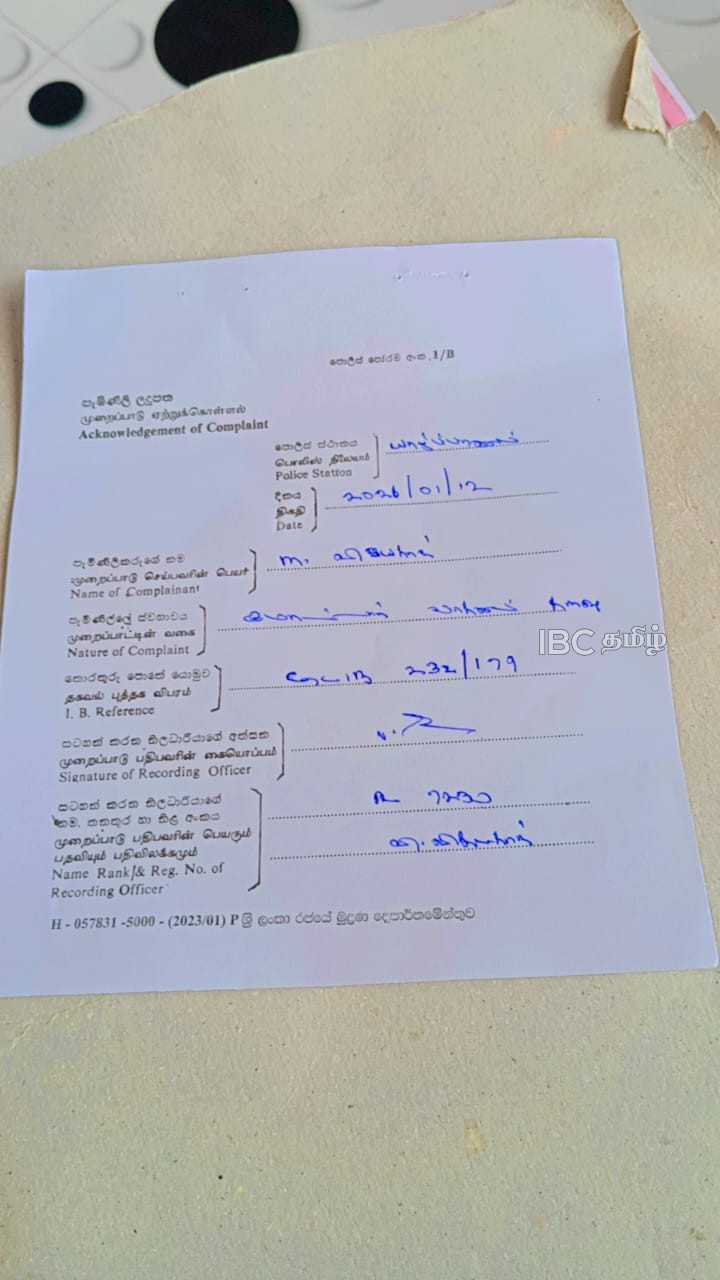 පොලිස් පෝරම අංක, 1/B
පැමිණිලි ලදුපත
முறைப்பாடு ஏற்றுக்கொள்ளல்
Acknowledgement of Complaint
පොලිස් ස්ථානය
பொலிஸ் நிலையம்
Police Station
யாழ்ப்பாணம்
දිනය
திகதி
Date
2026/01/12
පැමිණිලිකරුගේ නම
முறைப்பாடு செய்பவரின் பெயர்
Name of Complainant
m.
පැමිණිල්ලේ ස්වභාවය
முறைப்பாட்டின் வகை
Nature of Complaint
IBC தமிழ்
තොරතුරු පොතේ යොමුව
தகவல் புத்தக விபரம்
I. B. Reference
232/179
සටහන් කරන නිලධාරියාගේ අත්සන
முறைப்பாடு பதிபவரின் கையொப்பம்
Signature of Recording Officer
සටහන් කරන නිලධාරියාගේ
නම, තනතුර හා නිළ අංකය
முறைப்பாடு பதிபவரின் பெயரும்
பதவியும் பதிவிலக்கமும்
Name Rank & Reg. No. of
Recording Officer
H - 057831 -5000 - (2023/01) P ශ්‍රී ලංකා රජයේ මුද්‍රණ දෙපාර්තමේන්තුව